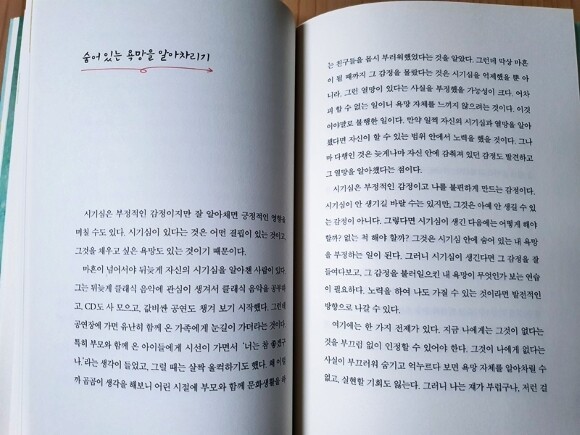 숨어 있는 욕망을 알아차리기
시기심은 부정적인 감정이지만 잘 알아채면 긍정적인 영향을
미칠 수도 있다. 시기심이 있다는 것은 어떤 결핍이 있는 것이고,
그것을 채우고 싶은 욕망도 있는 것이기 때문이다.
마흔이 넘어서야 뒤늦게 자신의 시기심을 알아챈 사람이 있다.
그는 뒤늦게 클래식 음악에 관심이 생겨서 클래식 음악을 공부하
고, CD도 사 모으고, 값비싼 공연도 챙겨 보기 시작했다. 그런데
공연장에 가면 유난히 함께 온 가족에게 눈길이 가더라는 것이다.
특히 부모와 함께 온 아이들에게 시선이 가면서 '너는 참 좋겠구
나.'라는 생각이 들었고, 그럴 때는 살짝 울컥하기도 했다. 왜 이럴
까 곰곰이 생각을 해보니 어린 시절에 부모와 함께 문화생활을 하
는 친구들을 몹시 부러워했었다는 것을 알았다. 그런데 막상 마흔
이 될 때까지 그 감정을 몰랐다는 것은 시기심을 억제했을 뿐 아
니라, 그런 열망이 있다는 사실을 부정했을 가능성이 크다. 어차
피 할 수 없는 일이니 욕망 자체를 느끼지 않으려는 것이다. 이것
이야말로 불행한 일이다. 만약 일찍 자신의 시기심과 열망을 알아
챘다면 자신이 할 수 있는 범위 안에서 노력을 했을 것이다. 그나
마 다행인 것은 늦게나마 자신 안에 감춰져 있던 감정도 발견하고
그 열망을 알아챘다는 점이다.
시기심은 부정적인 감정이고 나를 불편하게 만드는 감정이다.
시기심이 안 생기길 바랄 수는 있지만, 그것은 아예 안 생길 수 있
는 감정이 아니다. 그렇다면 시기심이 생긴 다음에는 어떻게 해야
할까? 없는 척 해야 할까? 그것은 시기심 안에 숨어 있는 내 욕망
을 부정하는 일이 된다. 그러니 시기심이 생긴다면 그 감정을 잘
들여다보고, 그 감정을 불러일으킨 내 욕망이 무엇인가 보는 연습
이 필요하다. 노력을 하여 나도 가질 수 있는 것이라면 발전적인
방향으로 나갈 수 있다.
여기에는 한 가지 전제가 있다. 지금 나에게는 그것이 없다는
것을 부끄럼 없이 인정할 수 있어야 한다. 그것이 나에게 없다는
사실이 부끄러워 숨기고 억누르다 보면 욕망 자체를 알아차릴 수
없고, 실현할 기회도 잃는다. 그러니 나는 쟤가 부럽구나, 저런 걸